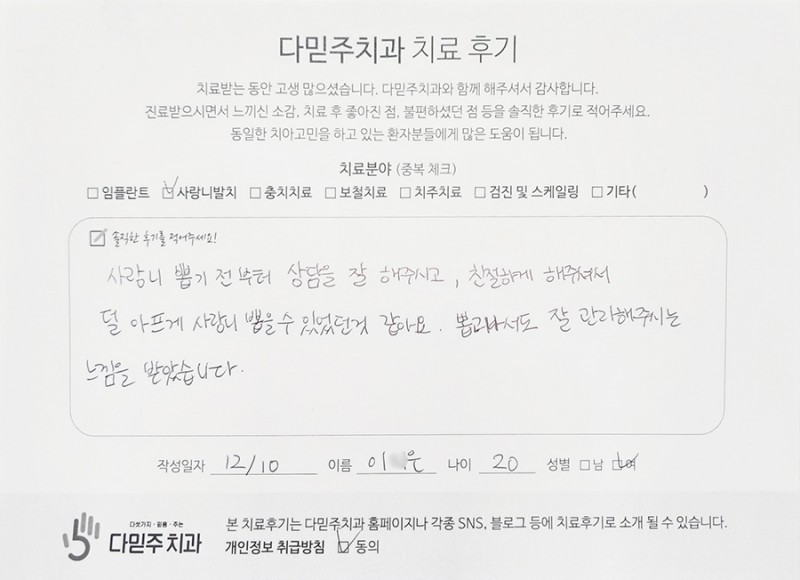 다믿주치과 치료 후기
치료받는 동안 고생 많으셨습니다. 다믿주치과와 함께 해주셔서 감사합니다.
진료받으시면서 느끼신 소감, 치료 후 좋아진 점, 불편하셨던 점 등을 솔직한 후기로 적어주세요.
동일한 치아고민을 하고 있는 환자분들에게 많은 도움이 됩니다.
치료분야 (중복 체크)
임플란트 사랑니발치 충치치료 보철치료 치주치료 검진 및 스케일링 기타( )
솔직한 후기를 적어주세요!
사랑니 뽑기 전부터 상담을 잘 해주시고, 친절하게 해주셔서
덜 아프게 사랑니 뽑을수 있었던것 같아요. 뽑고나서도 잘 관리해주시는
느낌을 받았습니다.
작성일자 12/10 이름 이 은 나이 20 성별 남 여
다섯가지·믿음·주는
다믿주치과
본 치료후기는 다믿주치과 홈페이지나 각종 SNS, 블로그 등에 치료후기로 소개 될 수 있습니다.
개인정보 취급방침 동의